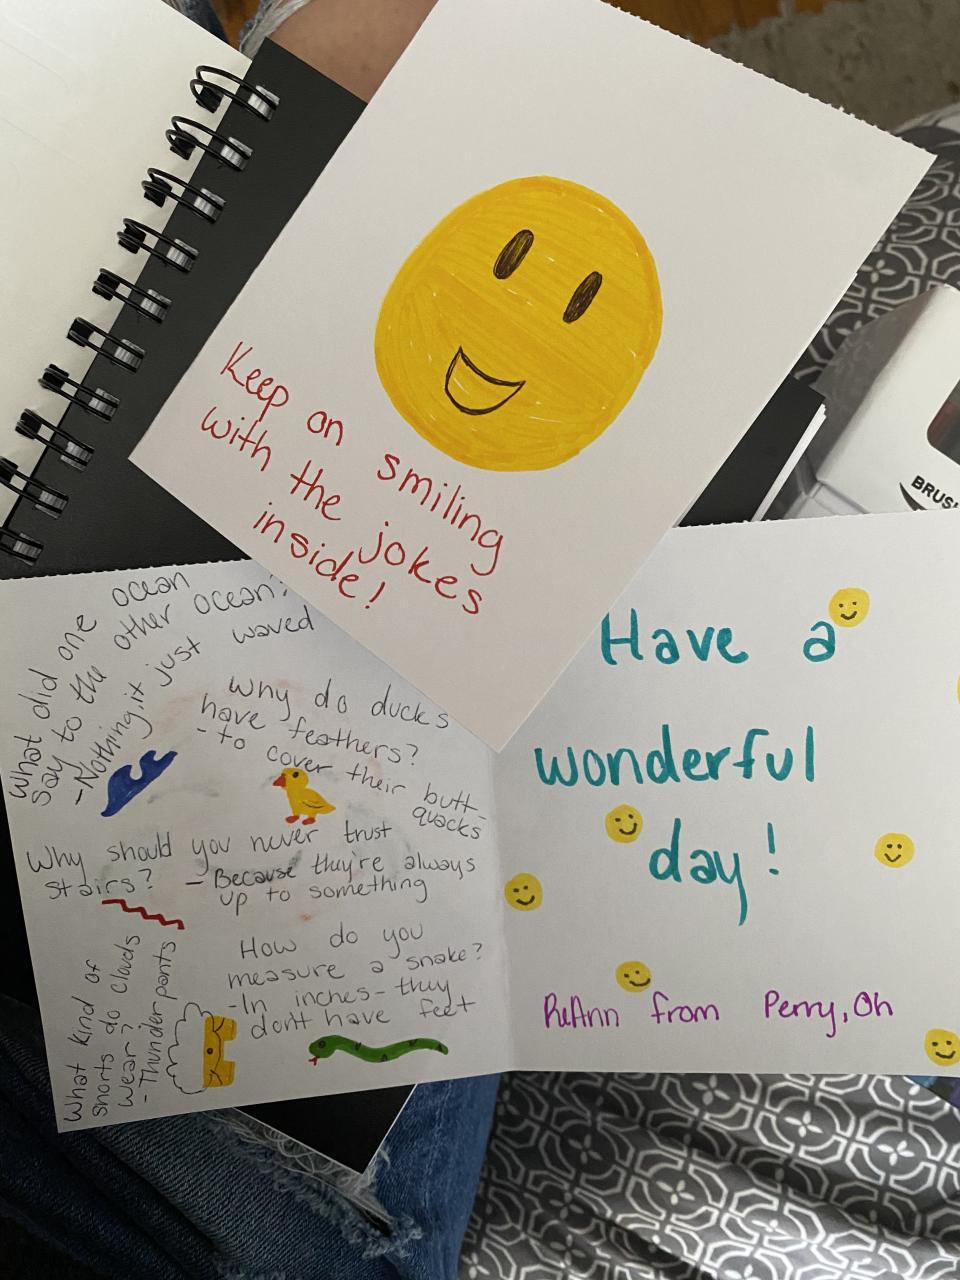 Keep on smiling
with the jokes
inside!
What did one ocean
say to the other ocean?
-Nothing, it just waved
Why do ducks
have feathers?
- to cover their butt-
quacks
Why should you never trust
stairs? - Because they're always
up to something
How do you
measure a snake?
-In inches - they
don't have feet
What kind of
shorts do clouds
wear?
- Thunderpants
Have a
wonderful
day!
ReAnn from Perry, Oh